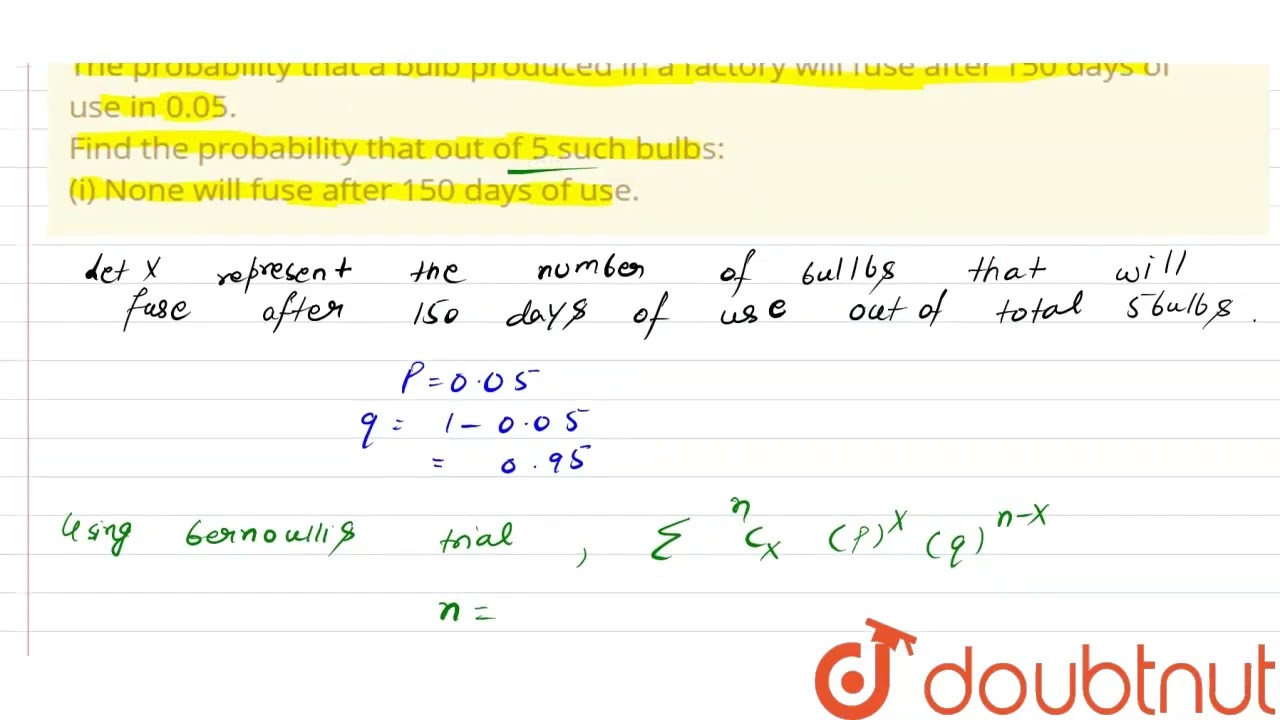 The probability that a bulb produced in a factory will fuse after 150 days of
use in 0.05.
Find the probability that out of 5 such bulbs:
(i) None will fuse after 150 days of use.
Let X represent the number of bullbs that will
fuse after 150 days of use out of total 5 bulbs.
P = 0.05
q = 1 - 0.05
= 0.95
Using bernoullis trial, Σ ⁿCₓ (P)ˣ (q)ⁿ⁻ˣ
n =
doubtnut